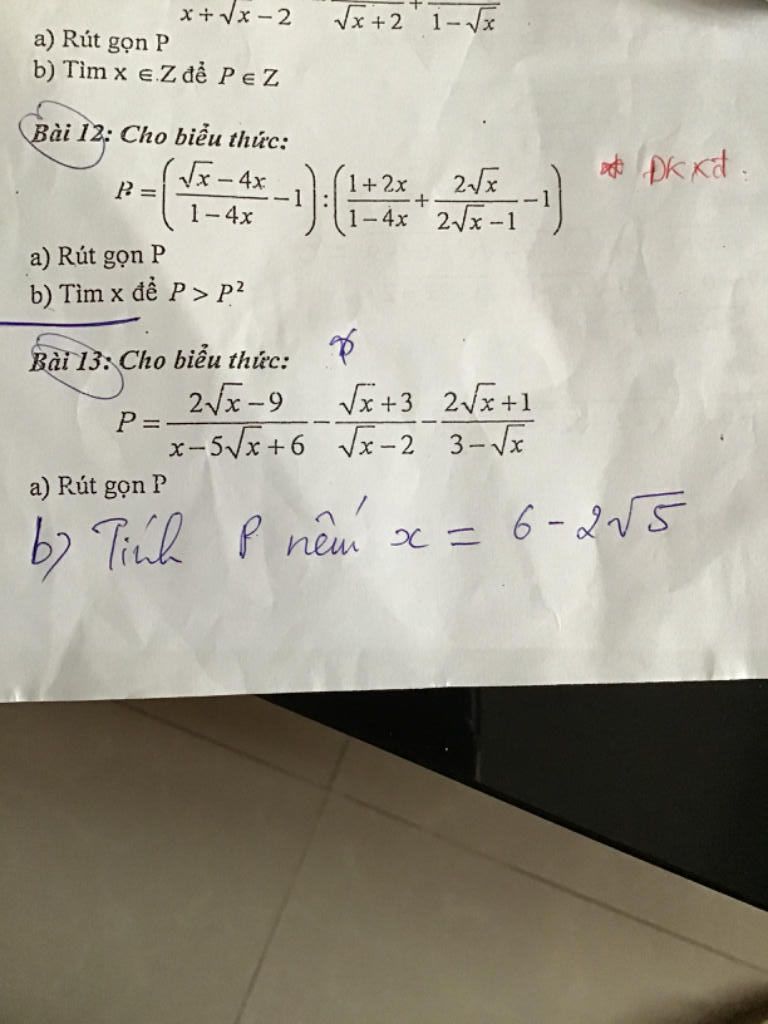 x + √x − 2 √x + 2 + 1 − √x
a) Rút gọn P
b) Tìm x ∈ Z để P ∈ Z
Bài 12: Cho biểu thức:
P = ((√x − 4x)/(1 − 4x) − 1) : ((1 + 2x)/(1 − 4x) + (2√x)/(2√x − 1) − 1) * ĐKXĐ.
a) Rút gọn P
b) Tìm x để P > P²
Bài 13: Cho biểu thức:
P = (2√x − 9)/(x − 5√x + 6) − (√x + 3)/(√x − 2) − (2√x + 1)/(3 − √x)
a) Rút gọn P
b) Tính P nếu x = 6 − 2√5